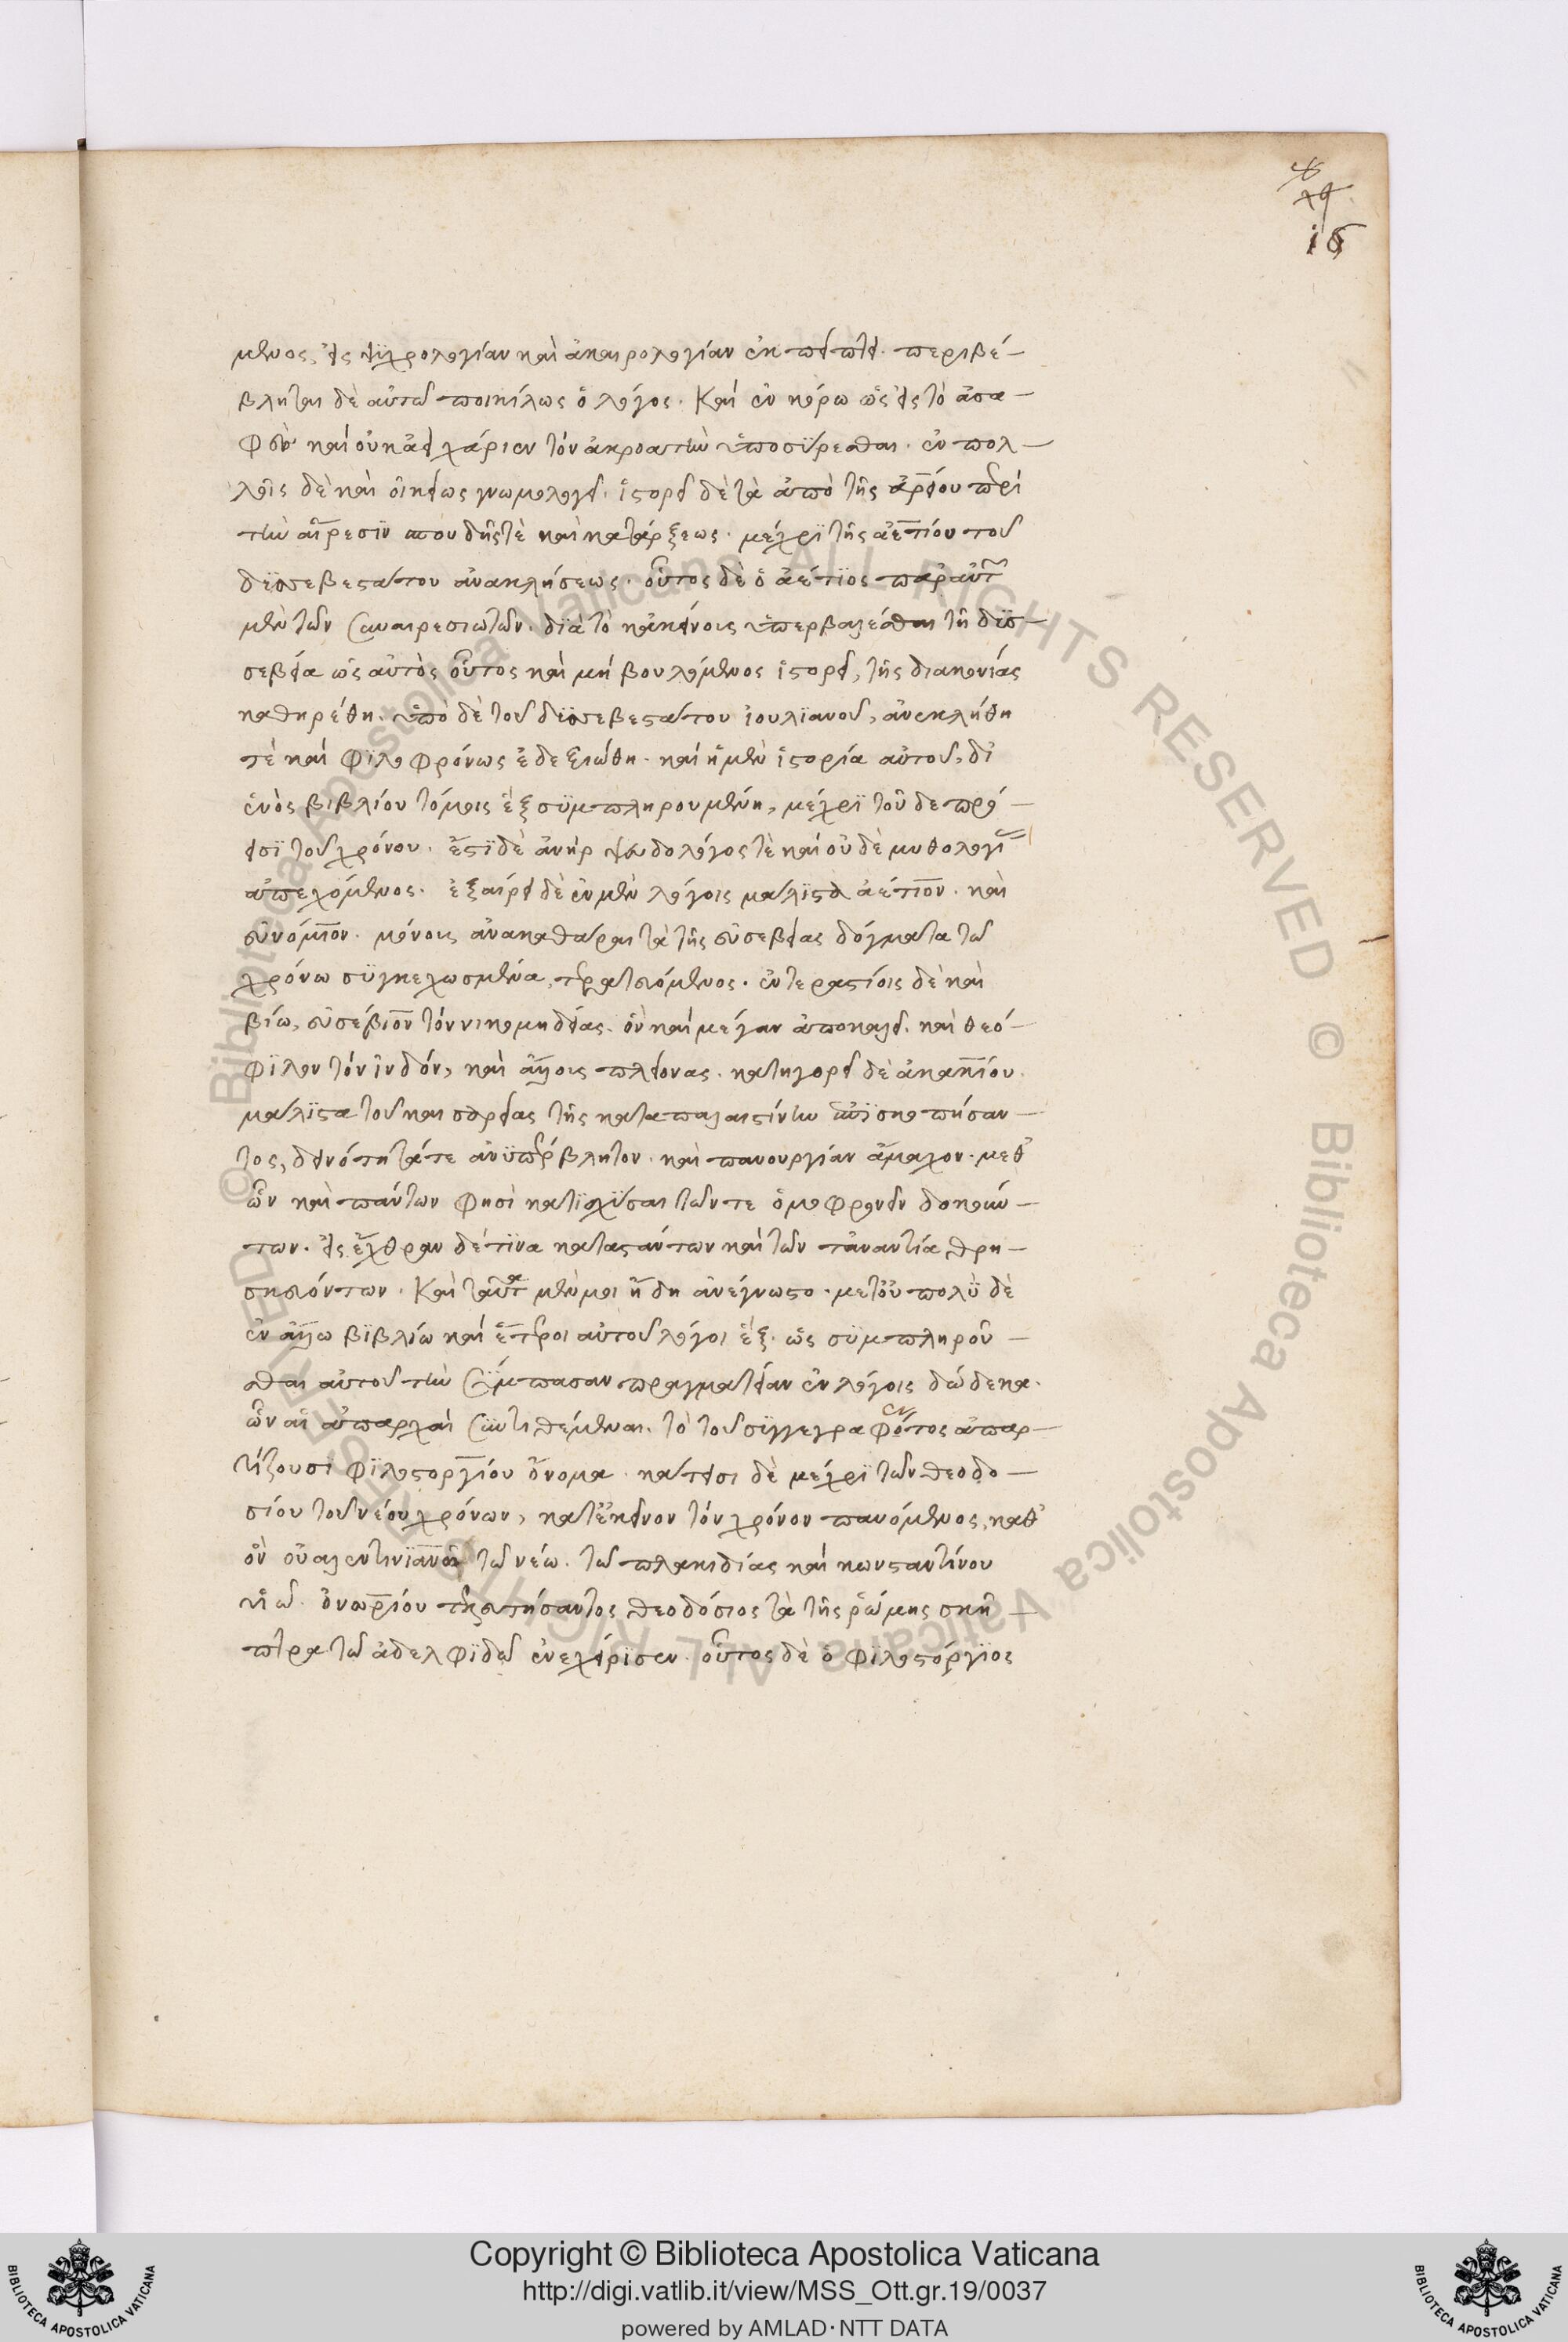 16
μενος, εἰς ψυχρολογίαν καὶ ἀκαιρολογίαν ἐκπίπτει. περιβέ-
βληται δὲ αὐτῶ ποικίλως ὁ λόγος. καὶ ἐν κόρω ὡς εἰς τὸ ἀσα-
φὲς καὶ οὐκ ἀεὶ χάριεν τὸν ἀκροατὴν ὑποσύρεσθαι. ἐν πολ-
λοῖς δὲ καὶ οἰκείως γνωμολογεῖ. ἱστορεῖ δὲ τὰ ἀπὸ τῆς ἀρείου περὶ
τὴν αἵρεσϊν σπουδῆς τὲ καὶ κατάρξεως. μέχρϊ τῆς ἀετίου τοῦ
δϋσσεβεστάτου ἀνακλήσεως. οὗτος δὲ ὁ ἀέτϊος παρ' αὐτῶν
μὲν τῶν συναιρεσιωτῶν. δϊὰ τὸ κἀκείνοις ὑπερβαλέσθαι τῆ δϋσ-
σεβεία ὡς αὐτὸς οὗτος καὶ μὴ βουλόμενος ἱστορεῖ, τῆς διακονίας
καθηρέθη. ὑπὸ δὲ τοῦ δϋσσεβεστάτου ἰουλϊανοῦ, ἀνεκλήθη
τὲ καὶ φϊλοφρόνως ἐδεξιώθη. καὶ ἡ μὲν ἱστορία αὐτοῦ, δι'
ἑνὸς βιβλίου τόμοις ἓξ σϋμπληρουμένη, μέχρϊ τοῦδε πρό-
εισϊ τοῦ χρόνου. ἔστϊ δὲ ἀνὴρ ψευδολόγος τὲ καὶ οὐδὲ μυθολογίας
ἀπεχόμενος. ἐξαίρει δὲ ἐν μὲν λόγοις μάλϊστα ἀέτιον. καὶ
εὐνόμιον. μόνους ἀνακαθᾶραι τὰ τῆς εὐσεβείας δόγματα τῶ
χρόνω σϋγκεχωσμένα, τερατευόμενος. ἐν τεραστίοις δὲ καὶ
βίω, εὐσέβιον τὸν νικομηδείας. ὃν καὶ μέγαν ἀποκαλεῖ. καὶ θεό-
φϊλον τὸν ἰνδόν, καὶ ἄλλους πλείονας. κατηγορεῖ δὲ ἀκακίου.
μάλϊστα τοῦ καισαρείας τῆς κατὰ παλαιστίνην ἐπϊσκοπήσαν-
τος, δεινότητά τε ἀνϋπέρβλητον. καὶ πανουργίαν ἄμαχον. μεθ'
ὧν καὶ πάντων φησὶ κατϊσχϋσαι τῶν τε ὁμοφρονεῖν δοκούν-
των. εἰς ἔχθραν δέ τϊνα καταστάντων καὶ τῶν τἀναντία θρη-
σκευόντων. καὶ ταῦτα μὲν μοι ἤδη ἀνέγνωστο. μετ' οὐ πολὺ δὲ
ἐν ἄλλω βϊβλίω καὶ ἕτεροι αὐτοῦ λόγοι ἕξ. ὡς σϋμπληροῦ-
σθαι αὐτοῦ τὴν σύμπασαν πραγματείαν ἐν λόγοις δώδεκα.
ὧν αἱ ἀπαρχαὶ συντιθέμεναι. τὸ τοῦ σϋγγεγραφότος ἀπαρ-
τίζουσι φϊλοστοργίου ὄνομα. κάτεισι δὲ μέχρϊ τῶν θεοδο-
σίου τοῦ νέου χρόνων, κατ' ἐκεῖνον τὸν χρόνον παυόμενος, καθ'
ὃν οὐαλεντινϊανῶ τῶ νέω. τῶ πλακιδίας καὶ κωνσταντίνου
υἱῶ. ὀνωρίου τελευτήσαντος θεοδόσιος τὰ τῆς ῥώμης σκῆ-
πτρα τῶ ἀδελφϊδῶ ἐνεχείρϊσεν. οὗτος δὲ ὁ φϊλοστόργϊος
Copyright © Biblioteca Apostolica Vaticana
http://digi.vatlib.it/view/MSS_Ott.gr.19/0037
powered by AMLAD·NTT DATA